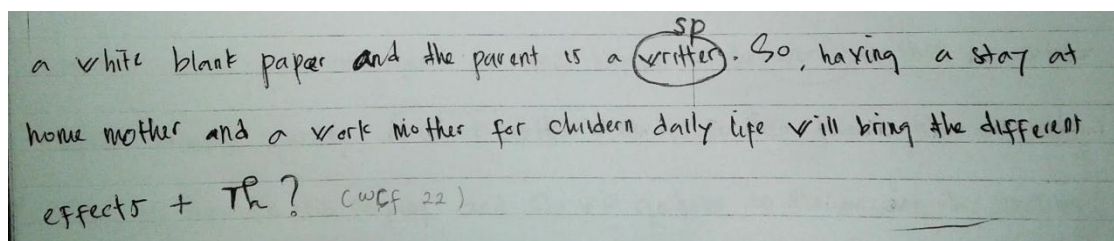 sp
a white blank paper and the parent is a writter. So, having a stay at
home mother and a work mother for childern daily life will bring the different
effects + Th? (WCF 22)